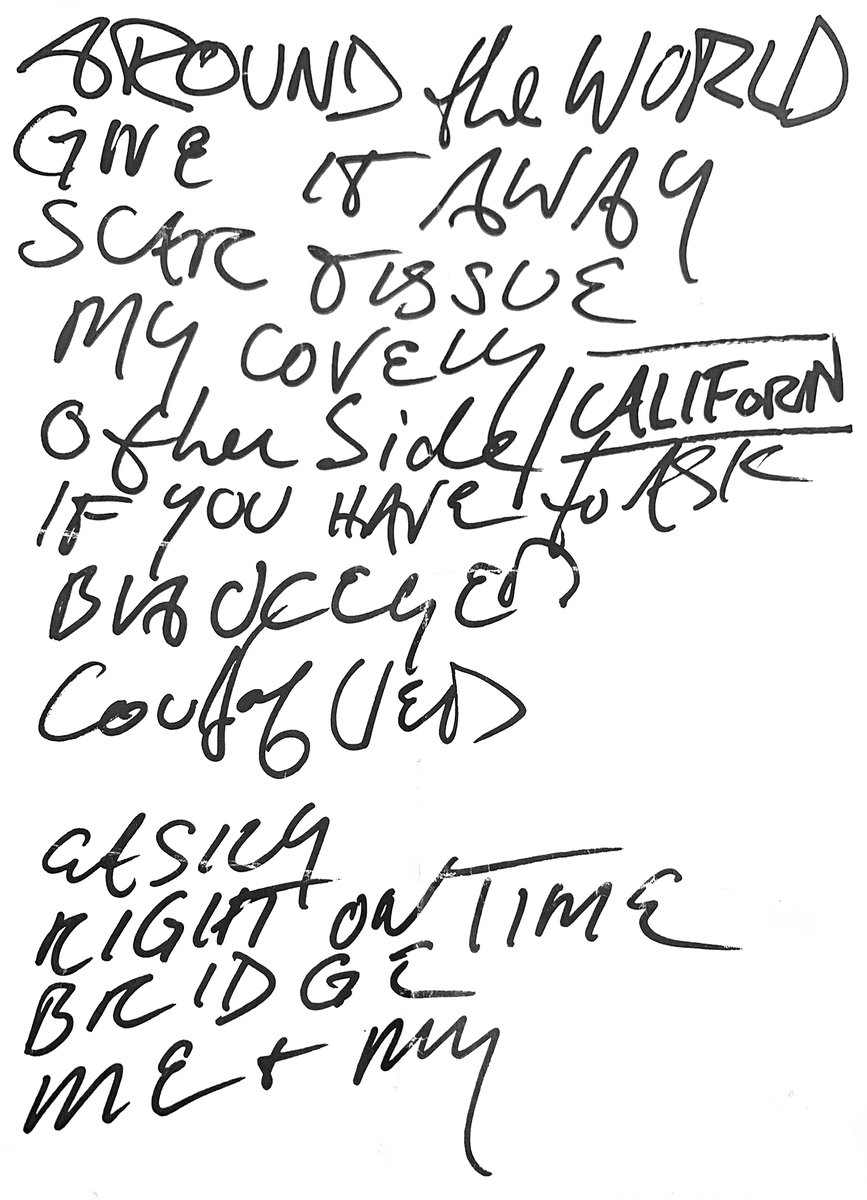 AROUND the WORLD
GIVE IT AWAY
SCAR TISSUE
MY LOVELY
Other Side / CALIFORN
IF YOU HAVE to ASK
BLACKEYED
EASILY
RIGHT ON TIME
BRIDGE
ME + MY